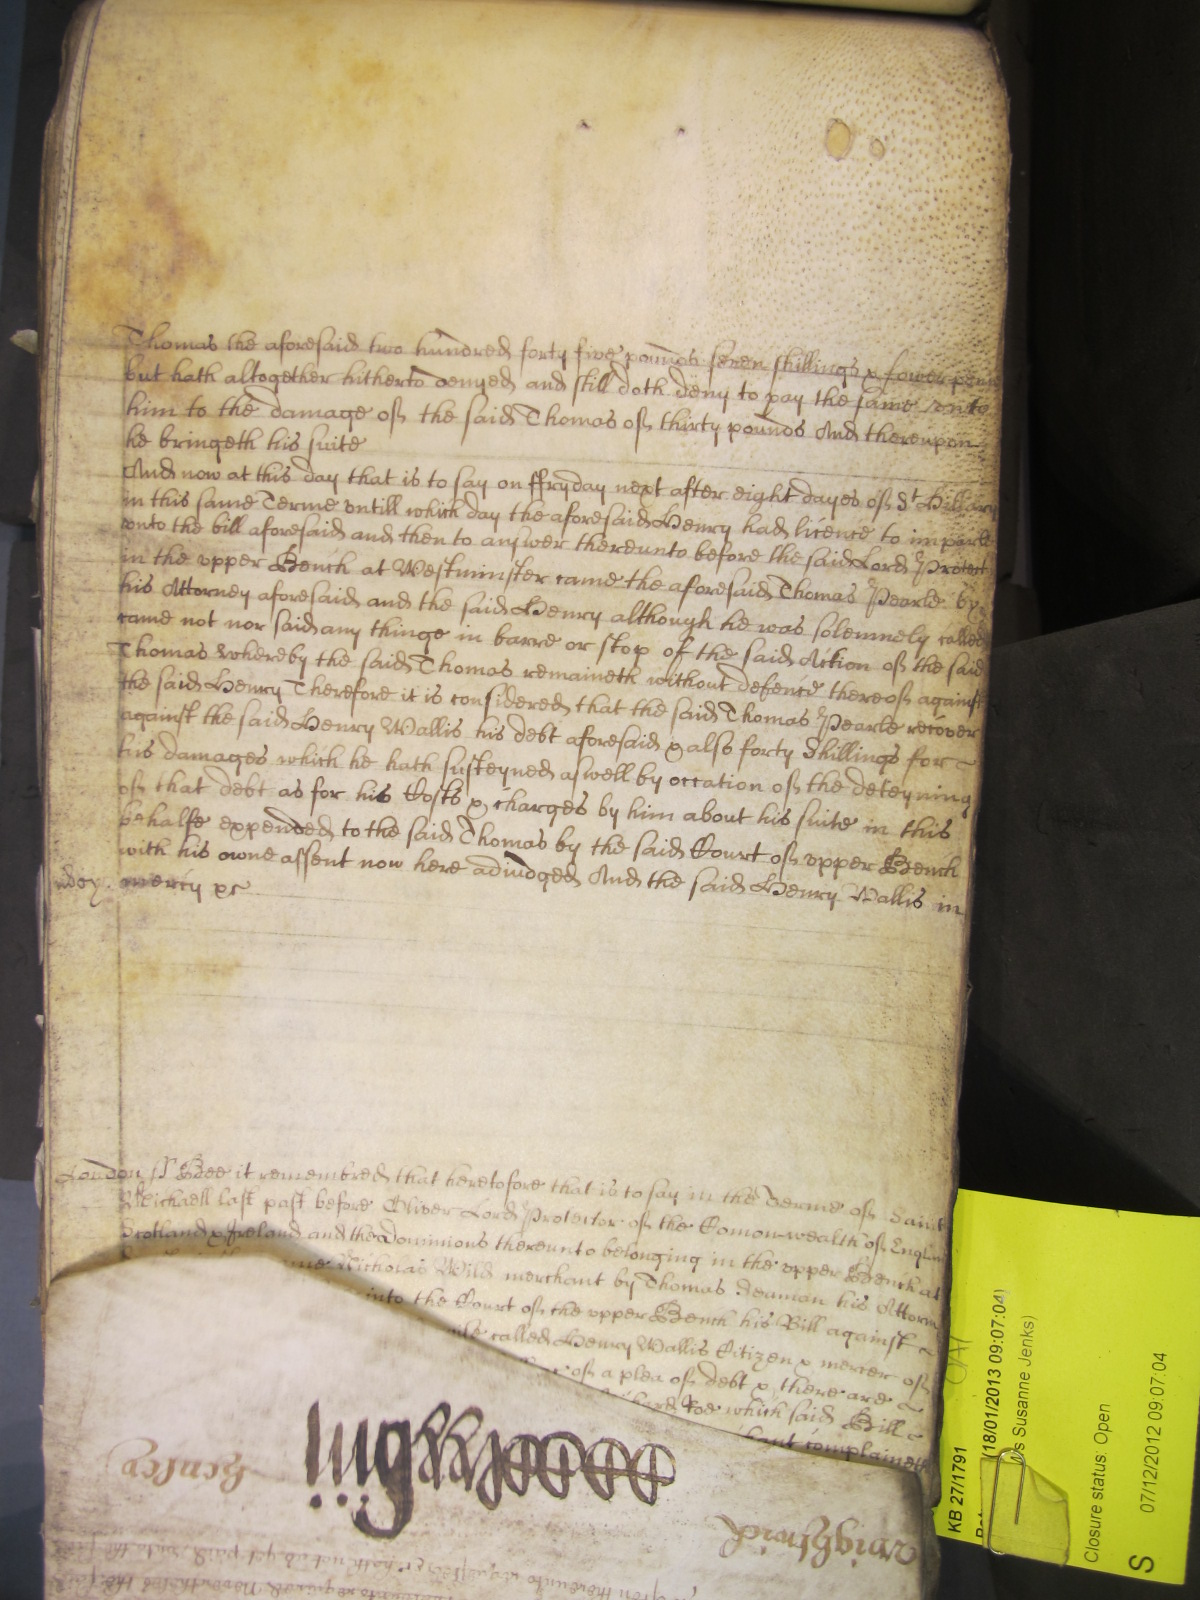 Thomas the aforesaid two hundred forty five pounds seven shillings & fower pence
but hath altogether hitherto denyed and still doth deny to pay the same vnto
him to the damage of the said Thomas of thirty pounds And thereupon
he bringeth his suite
And now at this day that is to say on ffryday next after eight dayes of St Hillary
in this same Terme vntill which day the aforesaid Henry had licence to imparle
vnto the bill aforesaid and then to answer thereunto before the said Lord Protect
in the vpper Bench at Westminster came the aforesaid Thomas Pearle by
his Attorney aforesaid and the said Henry although he was solemnely called
came not nor said any thinge in barre or stop of the said Action of the said
Thomas Whereby the said Thomas remaineth without defence thereof against
the said Henry Therefore it is considered that the said Thomas Pearle recover
against the said Henry Wallis his debt aforesaid & also forty Shillings for
his damages which he hath susteyned aswell by occation of the deteyning
of that debt as for his Costs & charges by him about his suite in this
behalfe expended to the said Thomas by the said Court of vpper Bench
with his owne assent now here adiudged And the said Henry Wallis in
mercy &c
London ss Bee it remembred that heretofore that is to say in the Terme of Saint
Michaell last past before Oliver Lord Protector of the Comon-wealth of Engl
Scotland & Ireland and the Dominions thereunto belonging in the vpper Bench at
Nicholas Wild merchant by Thomas Seamon his Attorn
into the Court of the vpper Bench his Bill against
called Henry Wallis Citizen & mercer of
of a plea of debt & there are
Roe which said Bill
complaineth
KB 27/1791
(18/01/2013 09:07:04)
Susanne Jenks)
Closure status: Open
07/12/2012 09:07:04
S